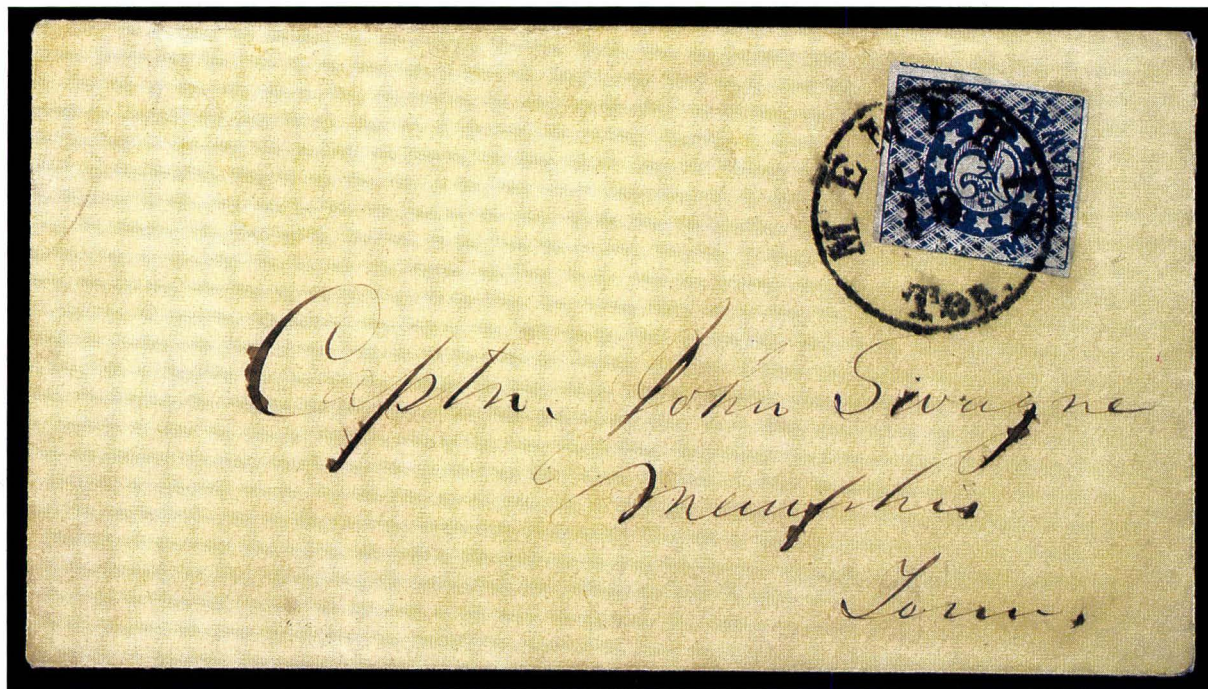 MEMPHIS
Ten.
2
CENTS
Captn. John Swayne
Memphis
Tenn.